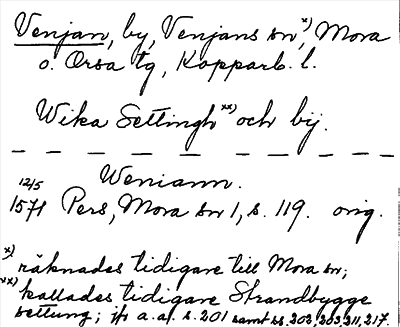 Venjan, by, Venjans sn,x) Mora
o. Orsa tg, Kopparb. l.
Wika Settingh xx) och bij.
Weniann.
12/5
1571 Pers, Mora sn 1, s. 119. orig.
x) räknades tidigare till Mora sn;
xx) kallades tidigare Strandbygge
settung; jfr a.a. s. 201 samt ss 202, 203, 211, 217.